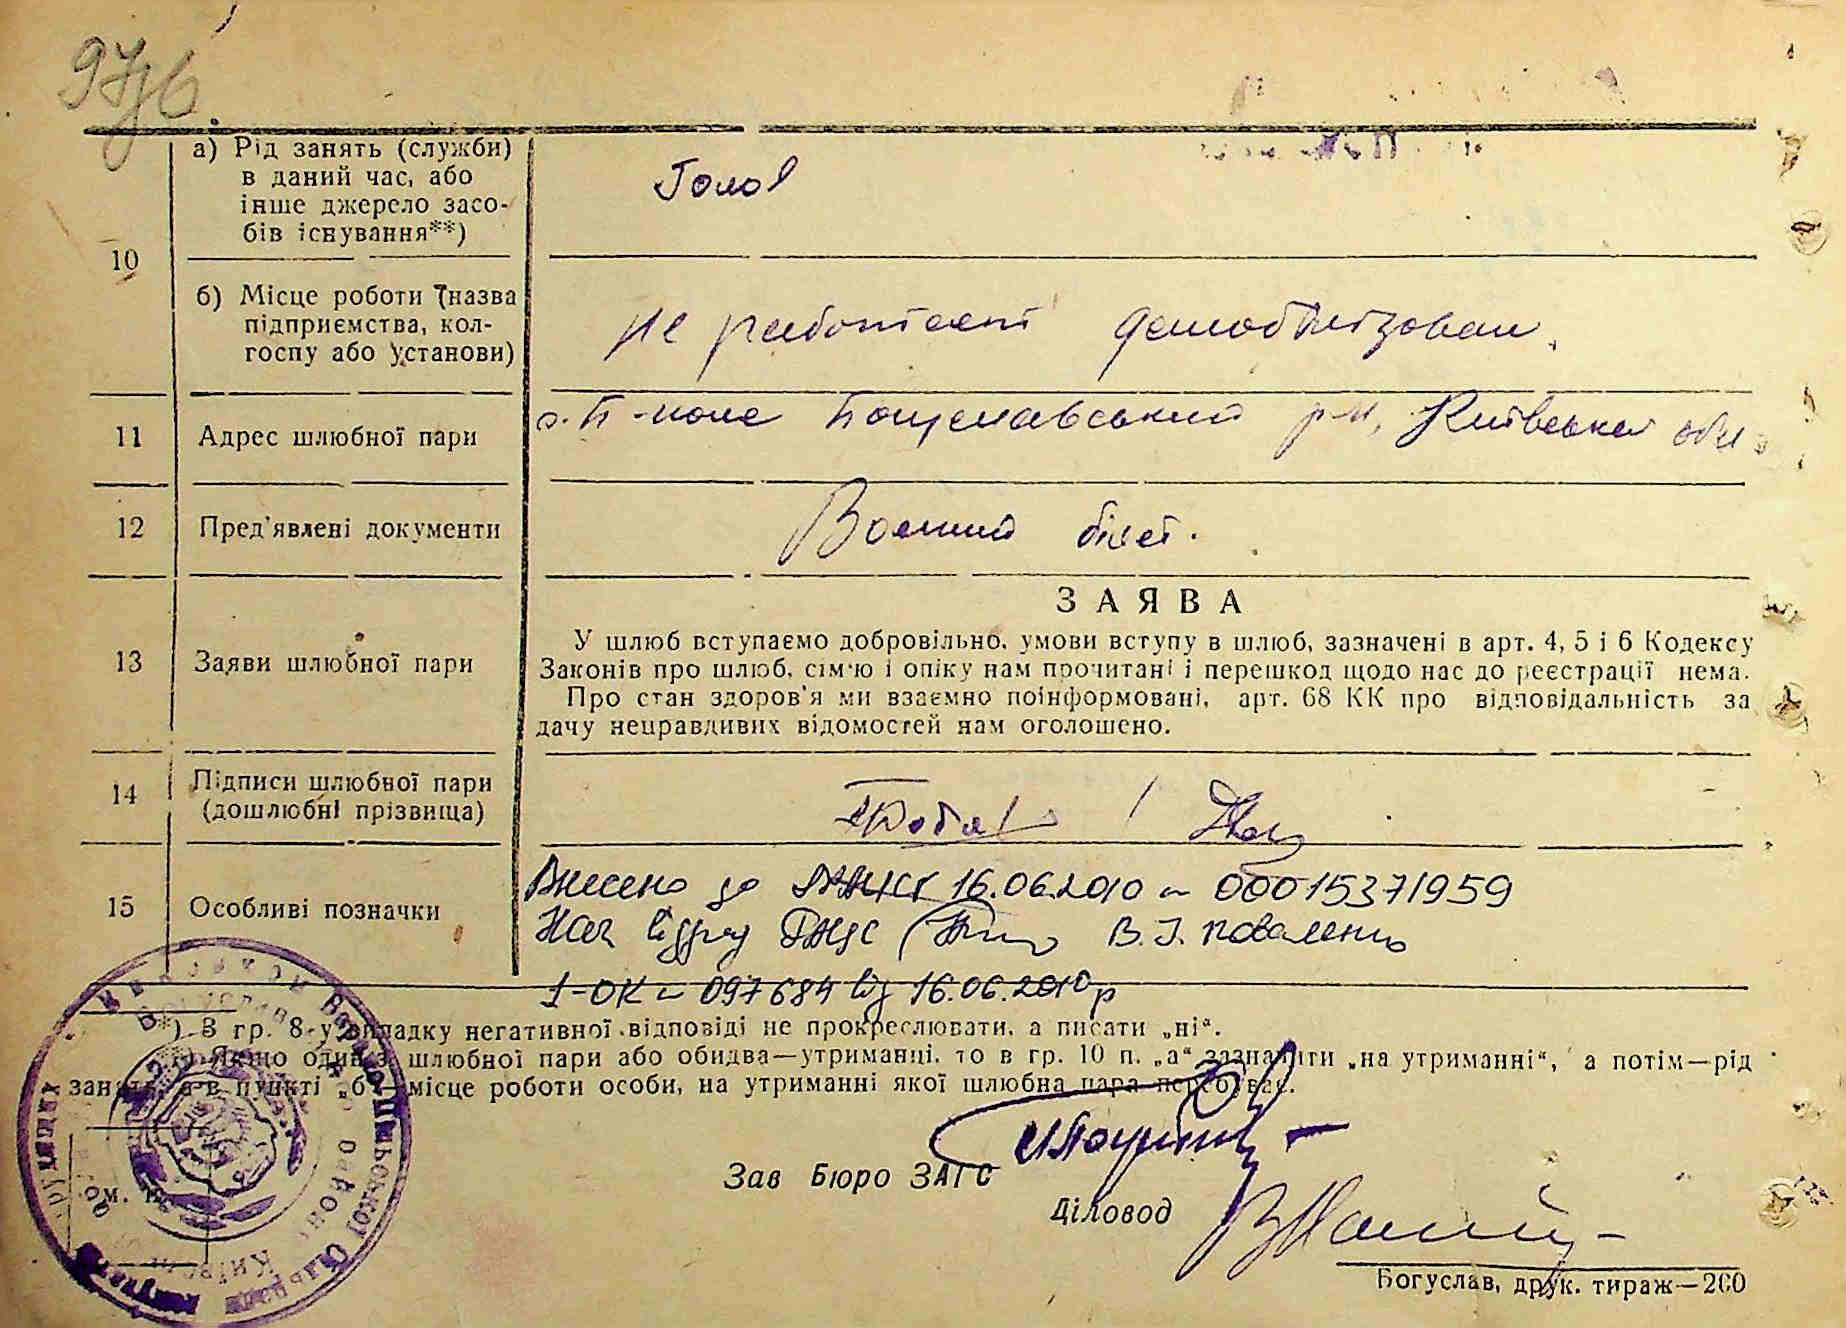 10
а) Рід занять (служби)
в даний час, або
інше джерело засо-
бів існування**)
Голов
б) Місце роботи (назва
підприємства, кол-
госпу або установи)
не работает демобілізован.
11
Адрес шлюбної пари
Київська обл.
12
Пред'явлені документи
Воєнний білет.
ЗАЯВА
13
Заяви шлюбної пари
У шлюб вступаємо добровільно, умови вступу в шлюб, зазначені в арт. 4, 5 і 6 Кодексу
Законів про шлюб, сім'ю і опіку нам прочитані і перешкод щодо нас до реєстрації нема.
Про стан здоров'я ми взаємно поінформовані, арт. 68 КК про відповідальність за
дачу неправдивих відомостей нам оголошено.
14
Підписи шлюбної пари
(дошлюбні прізвища)
15
Особливі позначки
Внесено до 16.06.2010 № 00015371959
Нач відділу В. І. Коваленко
1-ОК № 097684 від 16.06.2010р
*) В гр. 8 у випадку негативної відповіді не прокреслювати, а писати „ні“.
**) Якщо один з шлюбної пари або обидва—утриманці, то в гр. 10 п. „а“ зазначити „на утриманні“, а потім—рід
занять, а в пункті „б“ місце роботи особи, на утриманні якої шлюбна пара перебуває.
Зав Бюро ЗАГС
Діловод
Богуслав, друк. тираж—200